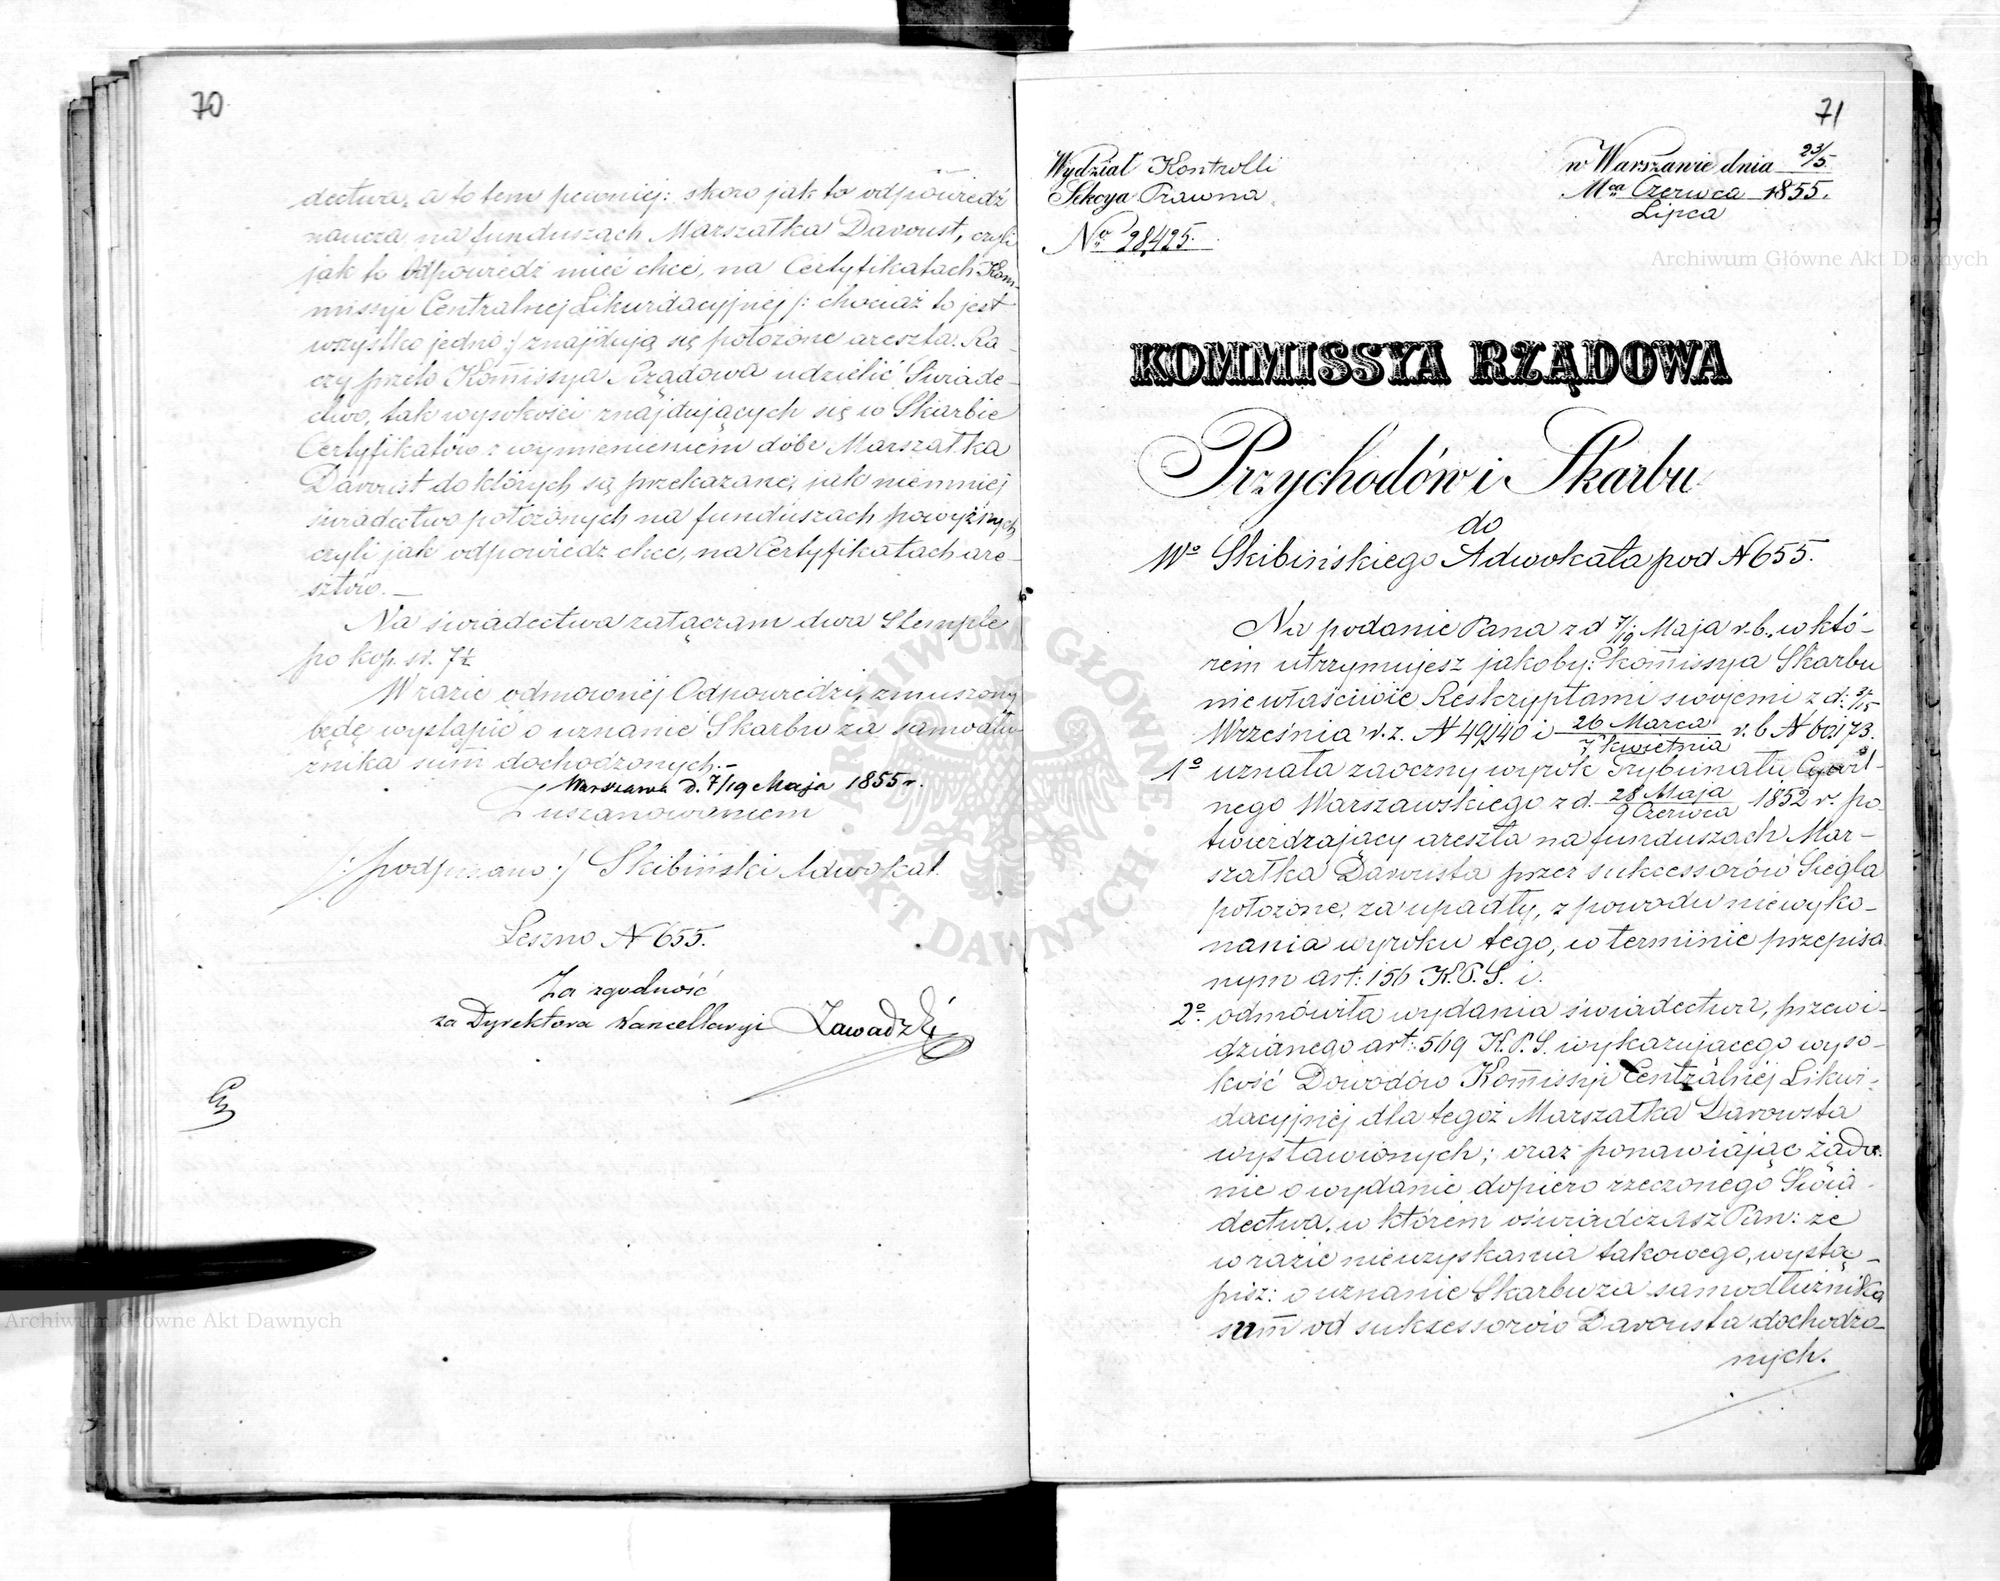 70
dectwa, a to tem pewniej: skoro jak to odpowiedź
naucza, na funduszach Marszałka Davoust, czyli
jak to Odpowiedź mieć chce, na Certyfikatach Kom-
missyi Centralnej Likwidacyjnej /: chociaż to jest
wszystko jedno :/ znajdują się położone areszta. Ra-
czy przeto Kommissya Rządowa udzielić Świade-
ctwo, tak wysokości znajdujących się w Skarbie
Certyfikatów z wymienieniem dóbr Marszałka
Davoust do których są przekazane, jak niemniej
świadectwo położonych na funduszach powyższych,
czyli jak odpowiedź chce, na Certyfikatach are-
sztów. —
Na świadectwa załączam dwa Stemple
po kop. sr. 7½
W razie odmownej Odpowiedzi, zmuszony
będę wystąpić o uznanie Skarbu za samodłu-
żnika sum̄ dochodzonych. —
Warszawa d. 7/19 Maja 1855 r.
Z uszanowaniem
/: podpisano :/ Skibiński Adwokat.
Leszno N 655.
Za zgodność
za Dyrektora Kancellaryi Zawadzki
71
Wydział Kontrolli
Sekcya Prawna
No 28,425.
w Warszawie dnia 23/5
Mca Czerwca 1855.
Lipca
KOMMISSYA RZĄDOWA
Przychodów i Skarbu
do
Wo Skibińskiego Adwokata pod N 655.
Na podanie Pana z d 7/19 Maja r. b., w któ-
rem utrzymujesz jakoby: Kom̄issya Skarbu
niewłaściwie Reskryptami swojemi z d: 3/15
Września r. z. N 49,140 i 26 Marca r. b N
7 kwietnia
1o uznała zaoczny wyrok Trybunału Cywil-
nego Warszawskiego z d. 28 Maja 1852 r. po-
9 Czerwca
twierdzający areszta na funduszach Mar-
szałka Davousta przez sukcessorów Siegla
położone, za upadły, z powodu niewyko-
nania wyroku tego, w terminie przepisa
nym art: 156 K.P.S. i.
2o odmówiła wydania świadectwa, przewi-
dzianego art: 569 K.P.S. wykazującego wyso-
kość Dowodów Kom̄issyi Centralnej Likwi-
dacyjnej dla tegoż Marszałka Davousta
wystawionych; oraz ponawiając żąda-
nie o wydanie dopiero rzeczonego Świa-
dectwa, w którem oświadczasz Pan: że
w razie nieuzyskania takowego, wystą-
pisz: o uznanie Skarbu za samodłużnika
sum̄ od sukcessorów Davousta dochodzo-
nych.
Archiwum Główne Akt Dawnych
Archiwum Główne Akt Dawnych
ARCHIWUM GŁÓWNE · AKT DAWNYCH ·